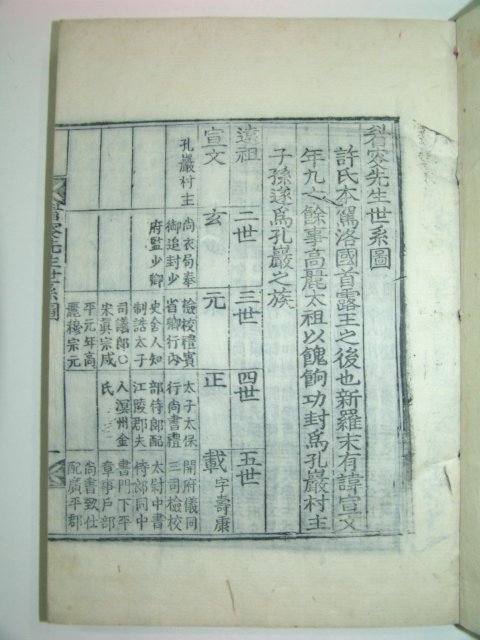 先生世系圖
許氏本駕洛國首露王之後也新羅末有諱宣文
年九十餘事高麗太祖以餽餉功封爲孔巖村主
子孫遂爲孔巖之族
遠祖 二世 三世 四世 五世
宣文 玄 元 正 載 字壽康
孔巖村主
尚衣局奉
御追封少
府監少卿
檢校禮賓
省卿行內
史舍人知
制誥太子
司議郞○
宋眞宗咸
平元年高
麗穆宗元
太子太保
行尚書禮
部侍郞配
江陵郡夫
人溟州金
氏
開府儀同
三司檢校
太尉中書
侍郞同中
書門下平
章事戶部
尚書致仕
配廣平郡
先生世系圖